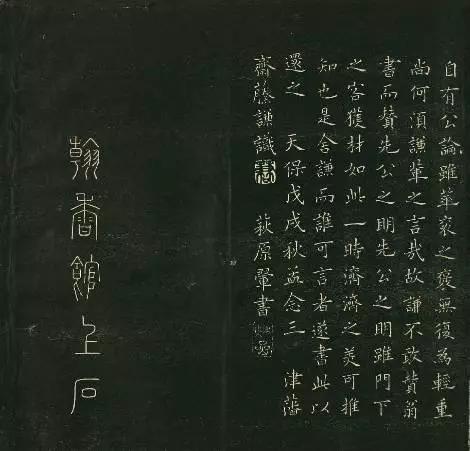 自有公論雖華袞之褒無復為輕重
尚何須謙輩之言哉故謙不敢贊翁
書而贊先公之明先公之明雖門下
之客獲材如此一時濟濟之美可推
知也是舍謙而誰可言者遂書此以
還之 天保戊戌秋孟念三 津藩
齋藤謙識 萩原翬書
翰香館上石